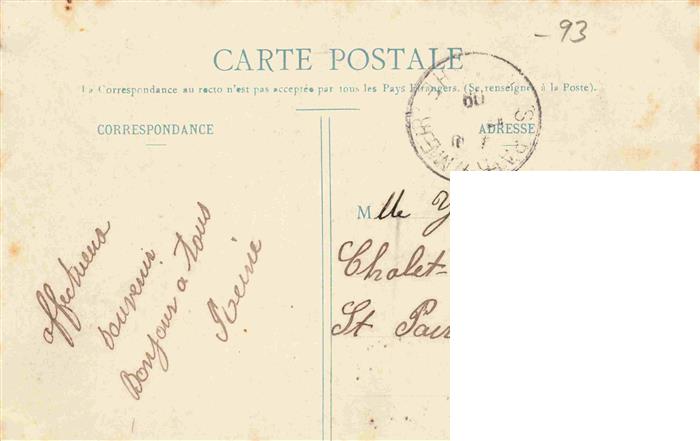 -93
CARTE POSTALE
La Correspondance au recto n'est pas acceptée par tous les Pays Etrangers. (Se renseigner à la Poste).
CORRESPONDANCE
ADRESSE
affectueux
souvenir
Bonjour a tous
Reine
Mlle Y
Chalet-
St Pair